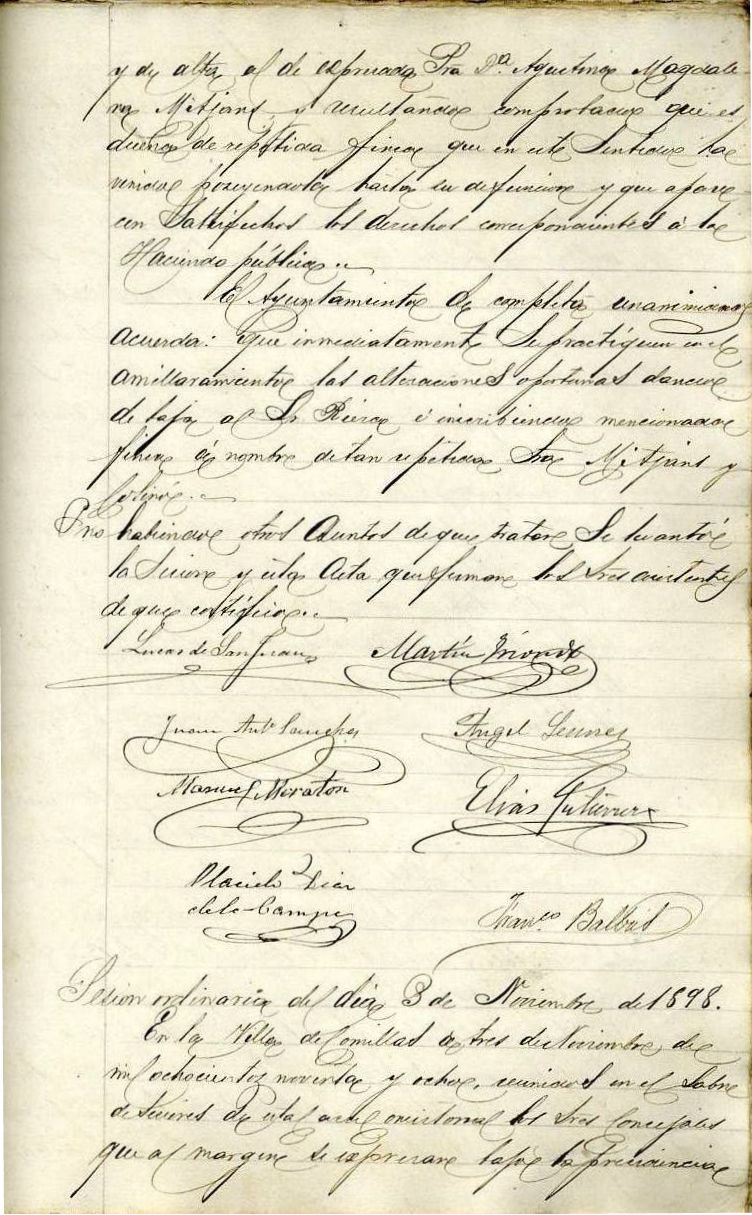 y de alta al de expresada Sra Dª. Agustina Magdale-
na Mitjans y resultando comprobado que es
dueña de repetida finca que en este sentido ha
venido poseyendola hasta su defuncion y que apare
cen satisfechos los derechos correspondientes á la
Hacienda pública.
El Ayuntamiento de completa unanimidad
acuerda: Que inmediatamente se practiquen en el
amillaramiento las alteraciones oportunas dando
de baja al Sr Riera é inscribiendo mencionada
finca á nombre de tan repetida Sra Mitjans y

Y no habiendo otros asuntos de que tratar se levantó
la sesion y esta acta que firman los Sres asistentes
de que certifico.
Lucas de San Juan Martín
Juan Antº Sanchez Angel
Manuel Moraton Elias Gutierrez
Placido Diaz
de la Campa
Franco. Balbás
Sesion ordinaria del dia 3 de Noviembre de 1898.
En la Villa de Comillas á tres de Noviembre de
mil ochocientos noventa y ocho, reunidos en el Salon
de sesiones de esta casa consistorial los Sres Concejales
que al margen se expresan bajo la presidencia